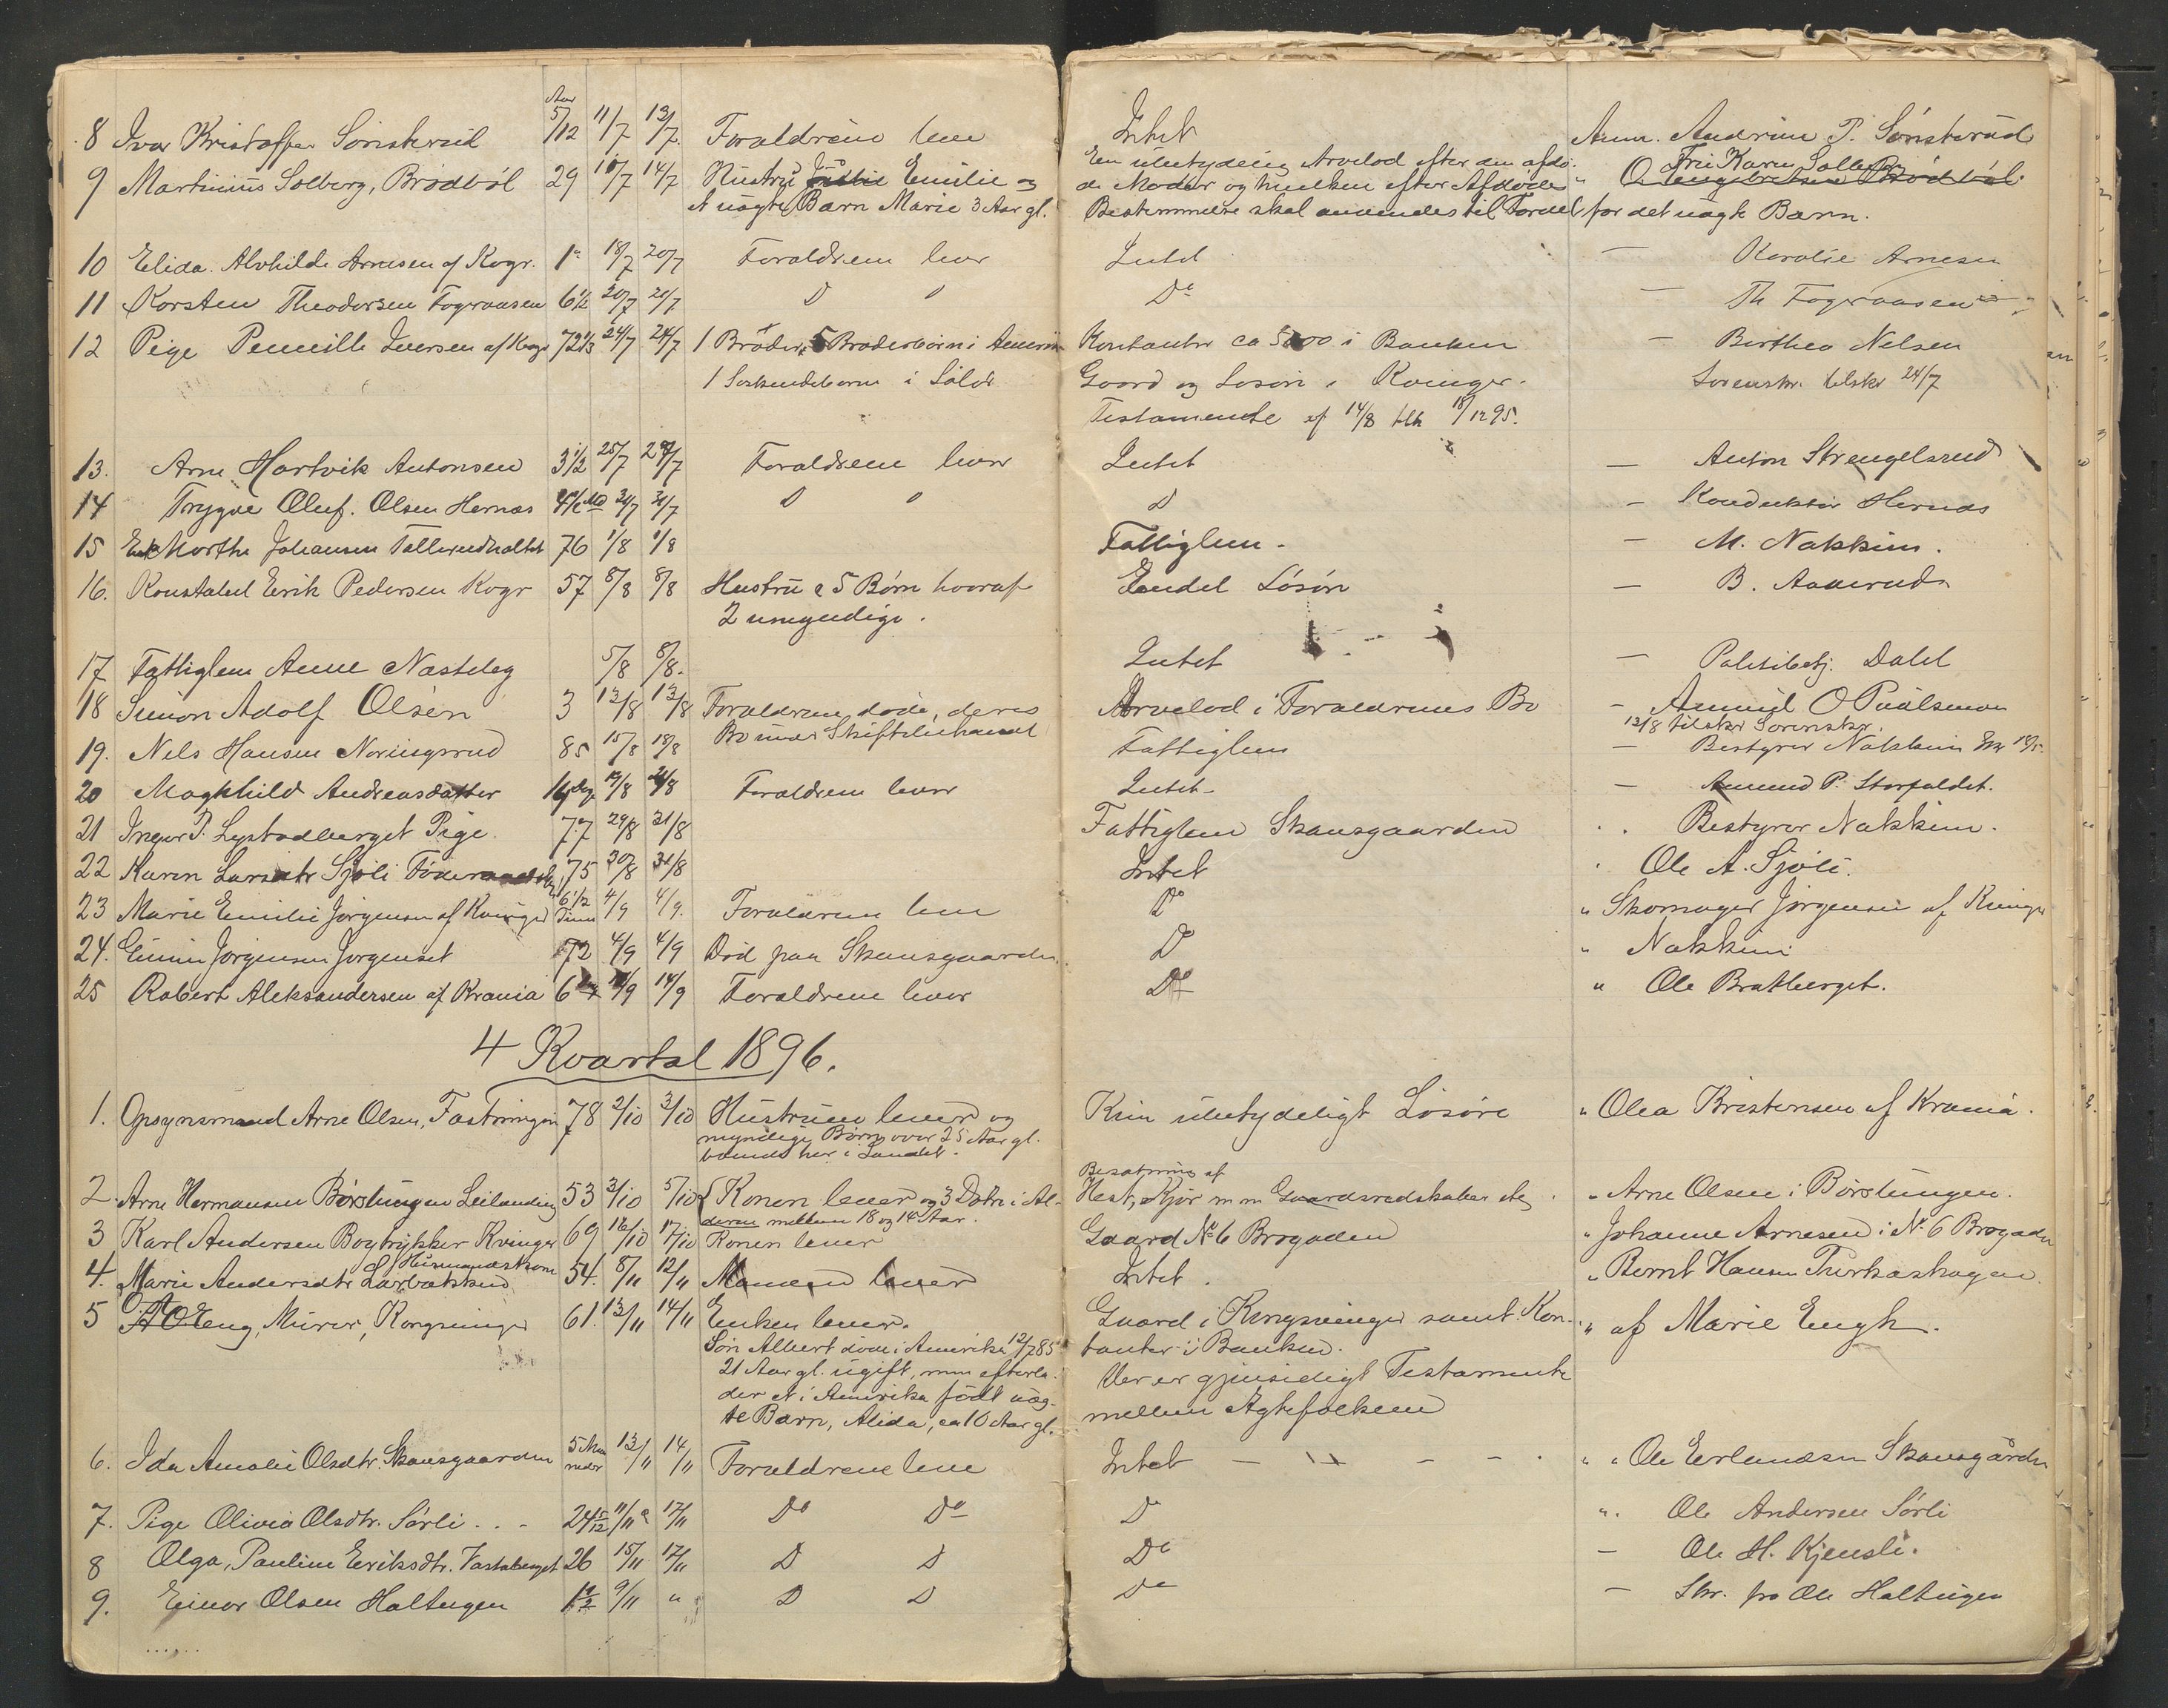 8 Ivar Kristoffer Sønsterud Aar 5/12 11/7 13/7. Forældrene leve Intet Anm. Andrine P. Sønsterud
9 Martinius Solberg, Brødbøl 29 10/7 14/7 Hustru Emilie og En ubetydelig Arvelod efter den afdø- " Fru Karen Solberg
et uægte Barn Marie 3 Aar gl. de Moder og hvilken efter Afdødes
Bestemmelse skal anvendes til Fordel for det uægte Barn.
10 Elida Alvhilde Arnesen af Kogr. 1" 18/7 20/7 Forældrene lever Intet — Karolie Arnesen
11 Korsten Theodorsen Fograasen 6 1/2 20/7 21/7 D o Do — Th Fograasen
12 Pige Pernille Iversen af Kogr 72 1/3 24/7 24/7 1 Broder, 5 Broderbørn i Amerika Kontanter ca 5000 i Banken — Berthea Nelsen
1 Søskendebarn i Solør Gaard og Løsøre i Kvinger. Sorenskr. tilskr 24/7
Testamente af 14/8 tlh 18/12 95.
13. Arne Hartvik Antonsen 3 1/2 25/7 28/7 Forældrene lever Intet — Anton Strengelsrud
14 Trygve Oluf. Olsen Hernæs Md 31/7 31/7 D o D — Konduktør Hernæs
15 Enke Marthe Johansen Tallerudholtet 76 1/8 1/8 Fattiglem. — M. Nakkim.
16. Konstabel Erik Pedersen Kogr 57 8/8 8/8 Hustru & 5 Børn hvoraf Endel Løsøre — B. Aamerud
2 umyndige.
17 Fattiglem Anne Næsteleg 5/8 8/8. Intet — Politibetj. Dahl
18 Simon Adolf Olsen 3 12/8 13/8 Forældrene døde, deres Arvelod i Forældrenes Bo — Amund O Paulsmoen
Bo under Skiftebehandl 13/8 tilskr Sorenskr.
19. Nels Hansen Noringsrud 85 15/8 18/8 Fattiglem — Bestyrer Nakkim
20 Magnhild Andreasdatter 14 dg. 19/8 21/8 Forældrene lever Intet — Amund P. Storfaldet.
21 Inger P. Lystadberget Pige. 77 29/8 31/8 Fattiglem Skansgaarden . . Bestyrer Nakkim.
22 Karen Larsdtr Sjøli 75 30/8 31/8 Intet . Ole A. Sjøli.
23 Marie Emilie Jørgensen af Kvinger 6 1/2 Time 4/9 4/9. Forældrene leve Do " Skomager Jørgensen af Kvinger
24. Gunar Jørgensen Jørgenset 72 4/9 4/9 Død paa Skansgaarden D " Nakkim
25 Robert Aleksandersen af Krania 6 14/9 Forældrene lever Do " Ole Bratberget.
4 Kvartal 1896.
1. Opsynsmand Arne Olsen, Fæstningen 78 2/10 3/10 Hustruen lever og Kun ubetydeligt Løsøre " Olea Kristensen af Krania.
myndige Børn over 25 Aar gl.
boende her i Landet.
2. Arne Hermansen Børstingen Leilænding 53 3/10 5/10 Konen lever og 3 Døtre i Al- Besætning af Hest, Kjør m m Gaardsredskaber etc . " Arne Olsen i Børstingen.
deren mellem 18 og 14 Aar.
3 Karl Andersen Bogtrykker Kvinger 69 16/10 17/10 Konen lever Gaard No 6 Brogaden " Johanne Arnesen i No 6 Brogaden
4. Marie Andersdtr Husmandskone 54. 8/11 12/11 Manden lever Intet. " Bernt Hansen Turkaskogen.
5 Eng, Murer, Kongsvinger 61. 13/11 14/11 Enken lever. Gaard i Kongsvinger samt Kon- " af Marie Engh.
Søn Albert døde i Amerika 12/7 85 tanter i Banken.
21 Aar gl. ugift, men efterla- Der er gjensidigt Testamente
der et i Amerika født uæg- mellem Ægtefolkene
te Barn, Alida, ca 10 Aar gl.
6. Ida Amalie Olsdtr. Skansgaarden 5 Maaneder 13/11 14/11 Forældrene leve Intet — — — . " " Ole Erlandsen Skansgården
7. Pige Olivia Olsdtr. Sørli . . - 24 5/12 11/11 17/11 Do Do D ". Ole Andersen Sørli
8 Olga, Pauline Eriksdtr. Vastaberget 26 15/11 17/11 D D Do — Ole H. Kjensli.
9. Einar Olsen Haltugen 1 1/2 9/11 " D D Do — Skr. fra Ole Haltugen